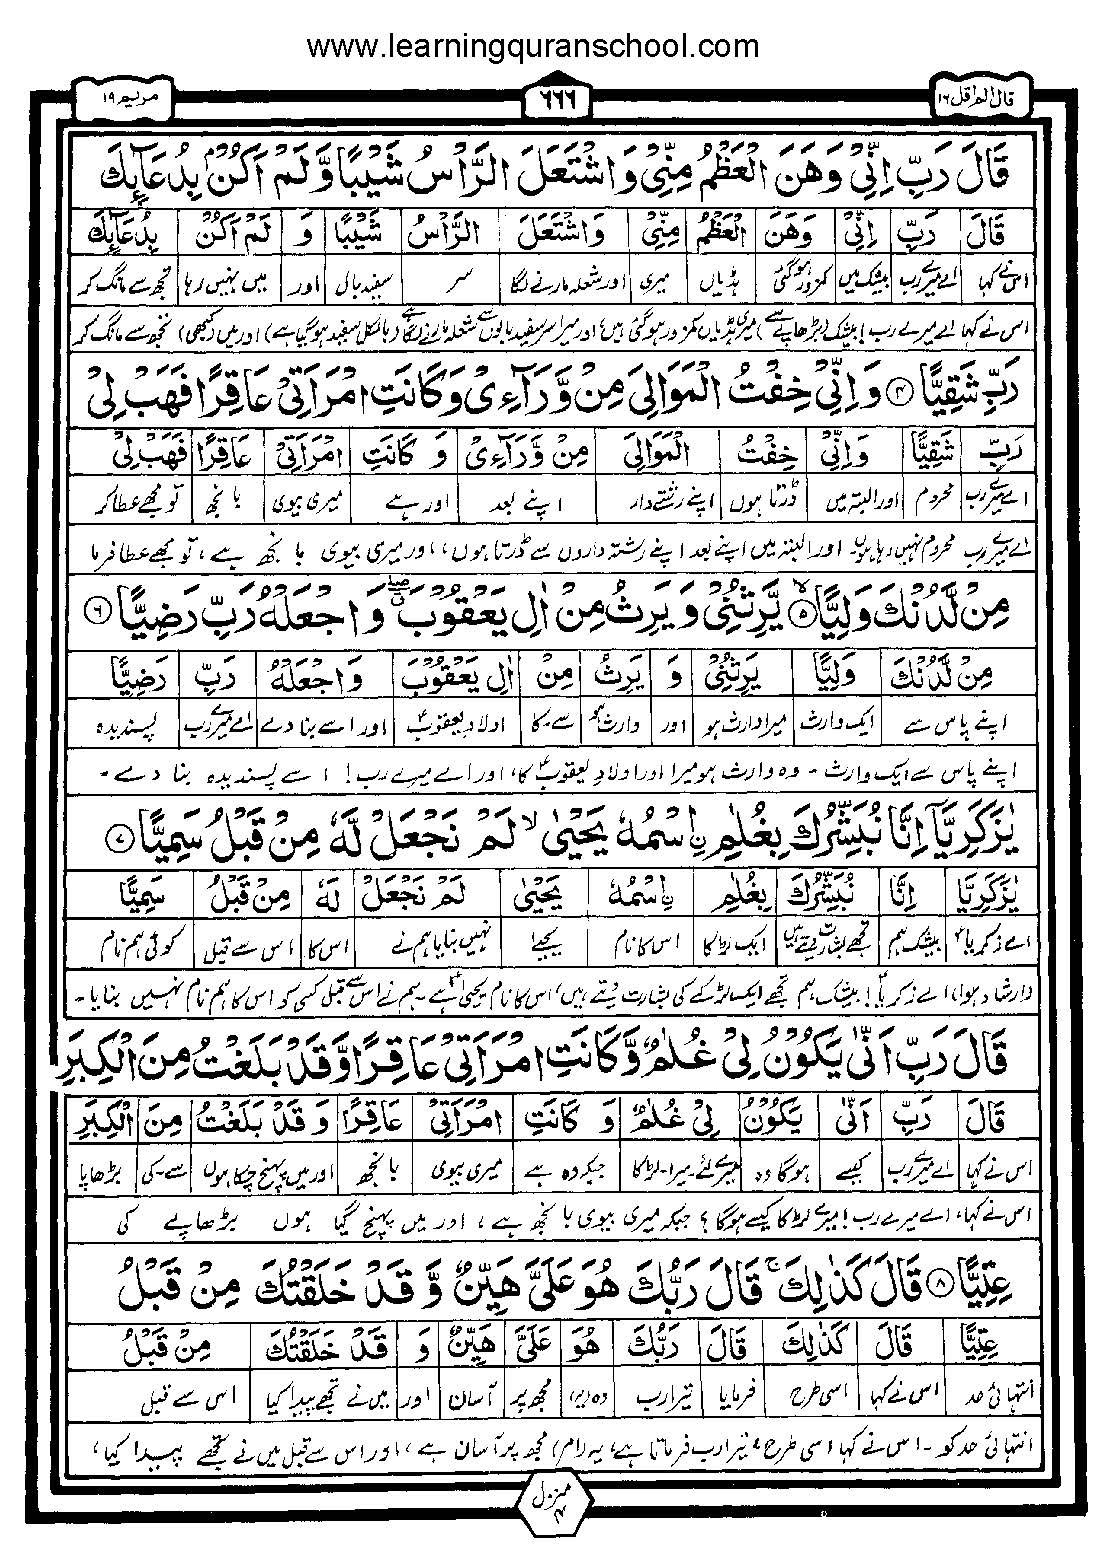 www.learningquranschool.com
قال الم اقل ۱۶
۶۶۶
مریم ۱۹
قَالَ رَبِّ اِنِّیْ وَهَنَ الْعَظْمُ مِنِّیْ وَاشْتَعَلَ الرَّاْسُ شَیْبًا وَّلَمْ اَكُنْۢ بِدُعَآىِٕكَ
قَالَ رَبِّ اِنِّیْ وَهَنَ الْعَظْمُ مِنِّیْ وَاشْتَعَلَ الرَّاْسُ شَیْبًا وَ لَمْ اَكُنْ بِدُعَآىِٕكَ
اس نے کہا اے میرے رب بیشک میں کمزور ہوگئی ہڈیاں میری اور شعلہ مارنے لگا سر سفید بال اور میں نہیں رہا تجھ سے مانگ کر
اس نے کہا اے میرے رب! بیشک (بڑھاپے سے) میری ہڈیاں کمزور ہوگئی ہیں اور میرا سر سفید بالوں سے شعلہ مارنے لگا ہے (بالکل سفید ہوگیا ہے) اور میں (کبھی) تجھ سے مانگ کر
رَبِّ شَقِیًّا ۴ وَاِنِّیْ خِفْتُ الْمَوَالِیَ مِنْ وَّرَآءِیْ وَكَانَتِ امْرَاَتِیْ عَاقِرًا فَهَبْ لِیْ
رَبِّ شَقِیًّا وَاِنِّیْ خِفْتُ الْمَوَالِیَ مِنْ وَّرَآءِیْ وَ كَانَتِ امْرَاَتِیْ عَاقِرًا فَهَبْ لِیْ
اے میرے رب محروم اور البتہ میں ڈرتا ہوں اپنے رشتے دار اپنے بعد اور ہے میری بیوی بانجھ تو مجھے عطا کر
اے میرے رب محروم نہیں رہا ہوں۔ اور البتہ میں اپنے بعد اپنے رشتہ داروں سے ڈرتا ہوں، اور میری بیوی بانجھ ہے، تو مجھے عطا فرما
مِنْ لَّدُنْكَ وَلِیًّا ۵ۙ یَّرِثُنِیْ وَیَرِثُ مِنْ اٰلِ یَعْقُوْبَ ۖق وَاجْعَلْهُ رَبِّ رَضِیًّا ۶
مِنْ لَّدُنْكَ وَلِیًّا یَرِثُنِیْ وَ یَرِثُ مِنْ اٰلِ یَعْقُوْبَ وَاجْعَلْهُ رَبِّ رَضِیًّا
اپنے پاس سے ایک وارث میرا وارث ہو اور وارث ہو سے۔ کا اولادِ یعقوبؑ اور اسے بنا دے اے میرے رب پسندیدہ
اپنے پاس سے ایک وارث۔ وہ وارث ہو میرا اور اولادِ یعقوبؑ کا، اور اے میرے رب! اسے پسندیدہ بنا دے۔
یٰزَكَرِیَّاۤ اِنَّا نُبَشِّرُكَ بِغُلٰمِ ِ۟اسْمُهٗ یَحْیٰی ۙ لَمْ نَجْعَلْ لَّهٗ مِنْ قَبْلُ سَمِیًّا ۷
یٰزَكَرِیَّا اِنَّا نُبَشِّرُكَ بِغُلٰمِ ِ۟اسْمُهٗ یَحْیٰی لَمْ نَجْعَلْ لَهٗ مِنْ قَبْلُ سَمِیًّا
اے زکریاؑ بیشک ہم تجھے بشارت دیتے ہیں ایک لڑکا اس کا نام یحییٰ نہیں بنایا ہم نے اس کا اس سے قبل کوئی ہم نام
(ارشاد ہوا) اے زکریاؑ! بیشک ہم تجھے ایک لڑکے کی بشارت دیتے ہیں، اس کا نام یحییٰؑ ہے۔ ہم نے اس سے قبل کسی کو اس کا ہم نام نہیں بنایا۔
قَالَ رَبِّ اَنّٰی یَكُوْنُ لِیْ غُلٰمٌ وَّكَانَتِ امْرَاَتِیْ عَاقِرًا وَّقَدْ بَلَغْتُ مِنَ الْكِبَرِ
قَالَ رَبِّ اَنّٰی یَكُوْنُ لِیْ غُلٰمٌ وَ كَانَتِ امْرَاَتِیْ عَاقِرًا وَ قَدْ بَلَغْتُ مِنَ الْكِبَرِ
اس نے کہا اے میرے رب کیسے ہوگا وہ میرے لئے میرا۔ لڑکا جبکہ وہ ہے میری بیوی بانجھ اور میں پہنچ چکا ہوں سے۔ کی بڑھاپا
اس نے کہا، اے میرے رب! میرے لڑکا کیسے ہوگا؟ جبکہ میری بیوی بانجھ ہے، اور میں پہنچ گیا ہوں بڑھاپے کی
عِتِیًّا ۸ قَالَ كَذٰلِكَ ۚ قَالَ رَبُّكَ هُوَ عَلَیَّ هَیِّنٌ وَّقَدْ خَلَقْتُكَ مِنْ قَبْلُ
عِتِیًّا قَالَ كَذٰلِكَ قَالَ رَبُّكَ هُوَ عَلَیَّ هَیِّنٌ وَ قَدْ خَلَقْتُكَ مِنْ قَبْلُ
انتہائی حد اس نے کہا اسی طرح فرمایا تیرا رب وہ (یہ) مجھ پر آسان اور میں نے تجھے پیدا کیا اس سے قبل
انتہائی حد کو۔ اس نے کہا اسی طرح، تیرا رب فرماتا ہے، یہ (امر) مجھ پر آسان ہے، اور اس سے قبل میں نے تجھے پیدا کیا،
منزل ۴